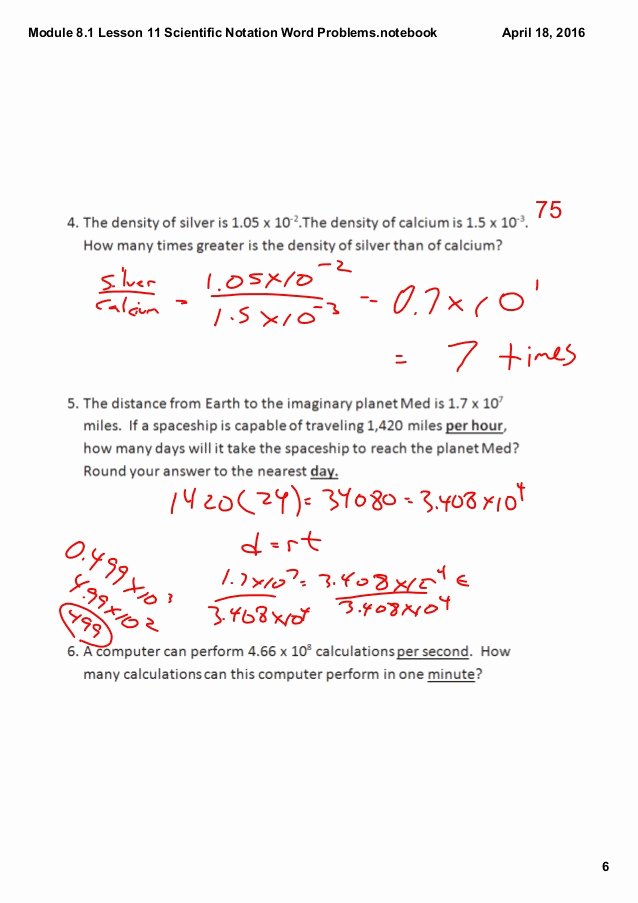 Module 8.1 Lesson 11 Scientific Notation Word Problems.notebook
April 18, 2016
75
4. The density of silver is 1.05 x 10⁻².The density of calcium is 1.5 x 10⁻³.
How many times greater is the density of silver than of calcium?
Silver / Calcium = 1.05x10⁻² / 1.5x10⁻³ = 0.7x10¹
= 7 times
5. The distance from Earth to the imaginary planet Med is 1.7 x 10⁷
miles. If a spaceship is capable of traveling 1,420 miles per hour,
how many days will it take the spaceship to reach the planet Med?
Round your answer to the nearest day.
1420(24)= 34080 = 3.408x10⁴
d=rt
1.7x10⁷ = 3.408x10⁴ t
3.408x10⁴ 3.408x10⁴
0.499x10³
4.99x10²
499
6. A computer can perform 4.66 x 10⁸ calculations per second. How
many calculations can this computer perform in one minute?
6